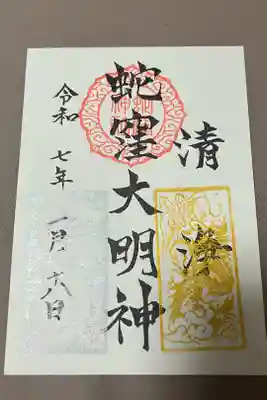 清
蛇窪大明神
令和七年一月六日